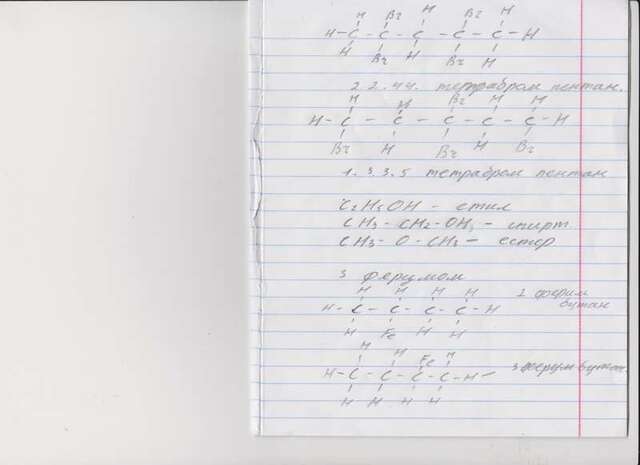 H Br H Br H
H - C - C - C - C - C - H
H Br H Br H
2.2.4.4. тетрабром пентан.
H H Br H H
H - C - C - C - C - C - H
Br H Br H Br
1. 3. 3. 5 тетрабром пентан
C2H5OH - етил
CH3 - CH2 - OH - спирт
CH3 - O - CH3 - естер
З ферумом
H H H H
H - C - C - C - C - H
H Fe H H
2 ферум
бутан
H H Fe H
H - C - C - C - C - H -
H H H H
3 ферум бутан.